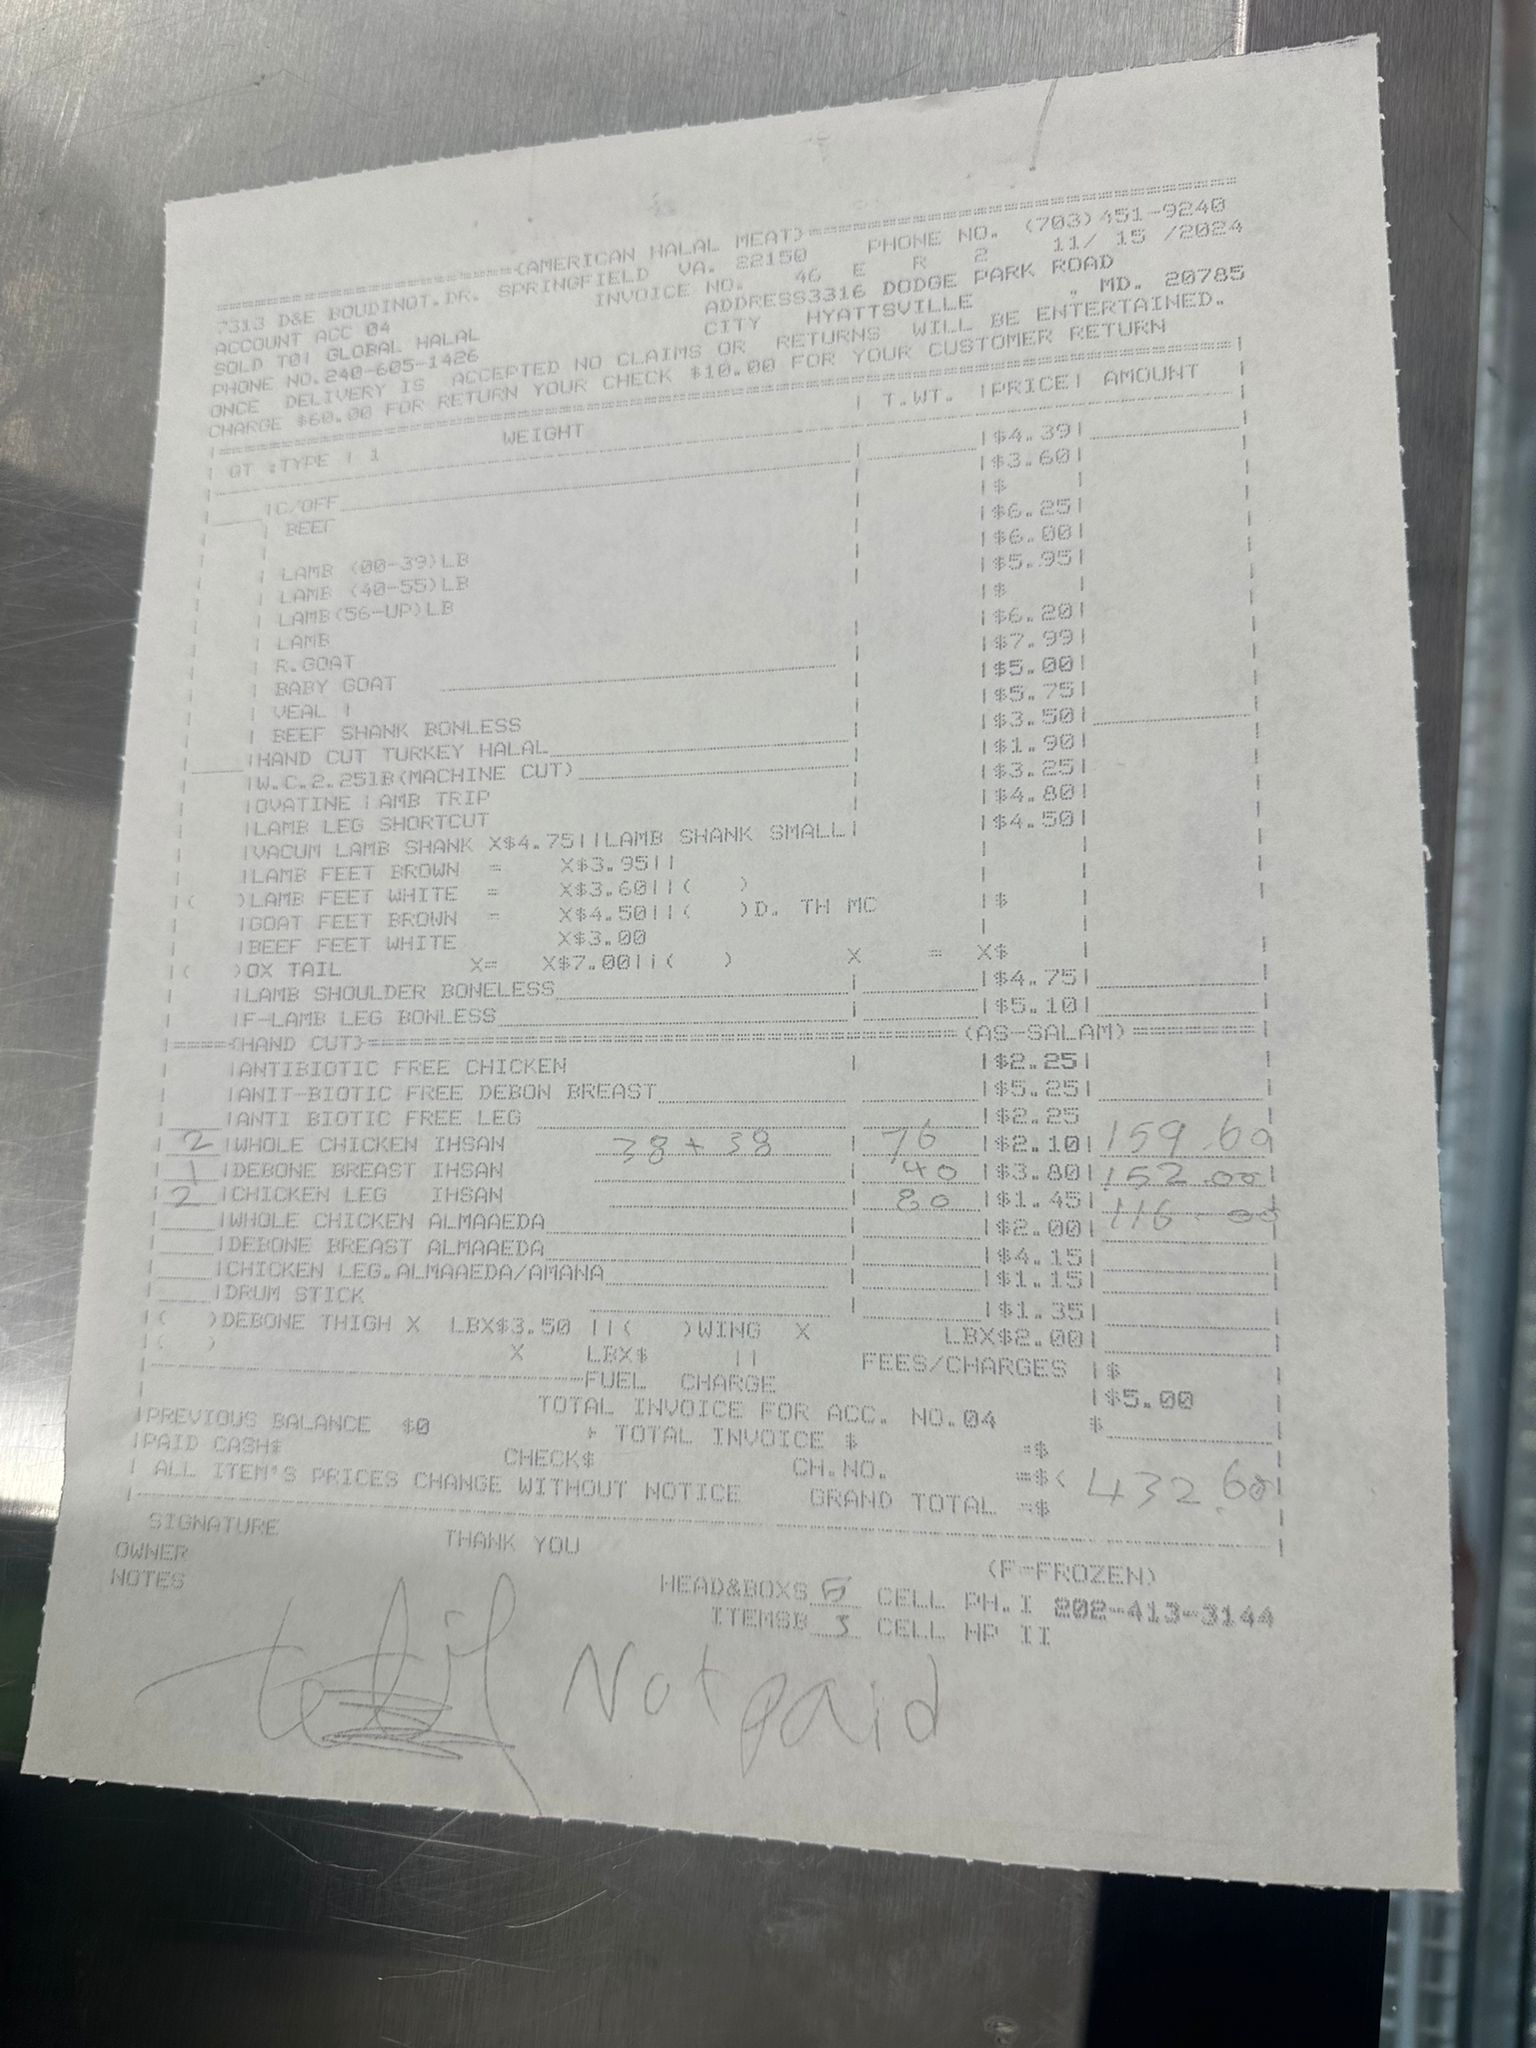 =====================(AMERICAN HALAL MEAT)=====================
7313 D&E BOUDINOT.DR. SPRINGFIELD VA. 22150 PHONE NO. (703)451-9240
ACCOUNT ACC 04 INVOICE NO. 46 E R 2 11/ 15 /2024
SOLD TO! GLOBAL HALAL ADDRESS3316 DODGE PARK ROAD
PHONE NO.240-605-1426 CITY HYATTSVILLE . MD. 20785
ONCE DELIVERY IS ACCEPTED NO CLAIMS OR RETURNS WILL BE ENTERTAINED.
CHARGE $60.00 FOR RETURN YOUR CHECK $10.00 FOR YOUR CUSTOMER RETURN
| QT :TYPE | 1 WEIGHT | T.WT. |PRICE| AMOUNT
|C/OFF |$4.39|
| BEEF |$3.60|
|$ |
| LAMB (00-39)LB |$6.25|
| LAMB (40-55)LB |$6.00|
| LAMB(56-UP)LB |$5.95|
| LAMB |$ |
| R.GOAT |$6.20|
| BABY GOAT |$7.99|
| VEAL | |$5.00|
| BEEF SHANK BONLESS |$5.75|
|HAND CUT TURKEY HALAL |$3.50|
|W.C.2.25lB(MACHINE CUT) |$1.90|
|OVATINE LAMB TRIP |$3.25|
|LAMB LEG SHORTCUT |$4.80|
|VACUM LAMB SHANK X$4.75||LAMB SHANK SMALL| |$4.50|
|LAMB FEET BROWN = X$3.95||
|( )LAMB FEET WHITE = X$3.60||( )
|GOAT FEET BROWN = X$4.50||( )D. TH MC |$
|BEEF FEET WHITE X$3.00
|( )OX TAIL X= X$7.00||( ) X = X$
|LAMB SHOULDER BONELESS |$4.75|
|F-LAMB LEG BONLESS |$5.10|
|====(HAND CUT)=====================(AS-SALAM)=======|
|ANTIBIOTIC FREE CHICKEN | |$2.25|
|ANIT-BIOTIC FREE DEBON BREAST |$5.25|
|ANTI BIOTIC FREE LEG |$2.25
2 |WHOLE CHICKEN IHSAN 38 + 38 | 76 |$2.10| 159.60
1 |DEBONE BREAST IHSAN 40 |$3.80| 152.00
2 |CHICKEN LEG IHSAN 80 |$1.45| 116.00
|WHOLE CHICKEN ALMAAEDA |$2.00|
|DEBONE BREAST ALMAAEDA |$4.15|
|CHICKEN LEG.ALMAAEDA/AMANA |$1.15|
|DRUM STICK |$1.35|
( )DEBONE THIGH X LBX$3.50 ||( )WING X LBX$2.00|
( ) X LBX$ || FEES/CHARGES |$
FUEL CHARGE |$5.00
TOTAL INVOICE FOR ACC. NO.04 $
|PREVIOUS BALANCE $0 + TOTAL INVOICE $ =$
|PAID CASH$ CHECK$ CH.NO. =$<
| ALL ITEM'S PRICES CHANGE WITHOUT NOTICE GRAND TOTAL =$ 432.60
SIGNATURE THANK YOU (F-FROZEN)
OWNER HEAD&BOXS 5 CELL PH.I 202-413-3144
NOTES ITEMSB 3 CELL HP II
Not paid